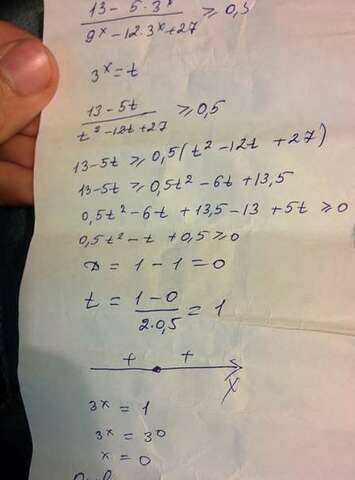 13 - 5·3ˣ / 9ˣ - 12·3ˣ + 27 ≥ 0,5
3ˣ = t
13 - 5t / t² - 12t + 27 ≥ 0,5
13 - 5t ≥ 0,5(t² - 12t + 27)
13 - 5t ≥ 0,5t² - 6t + 13,5
0,5t² - 6t + 13,5 - 13 + 5t ≥ 0
0,5t² - t + 0,5 ≥ 0
D = 1 - 1 = 0
t = 1 - 0 / 2·0,5 = 1
+ + x
3ˣ = 1
3ˣ = 3⁰
x = 0